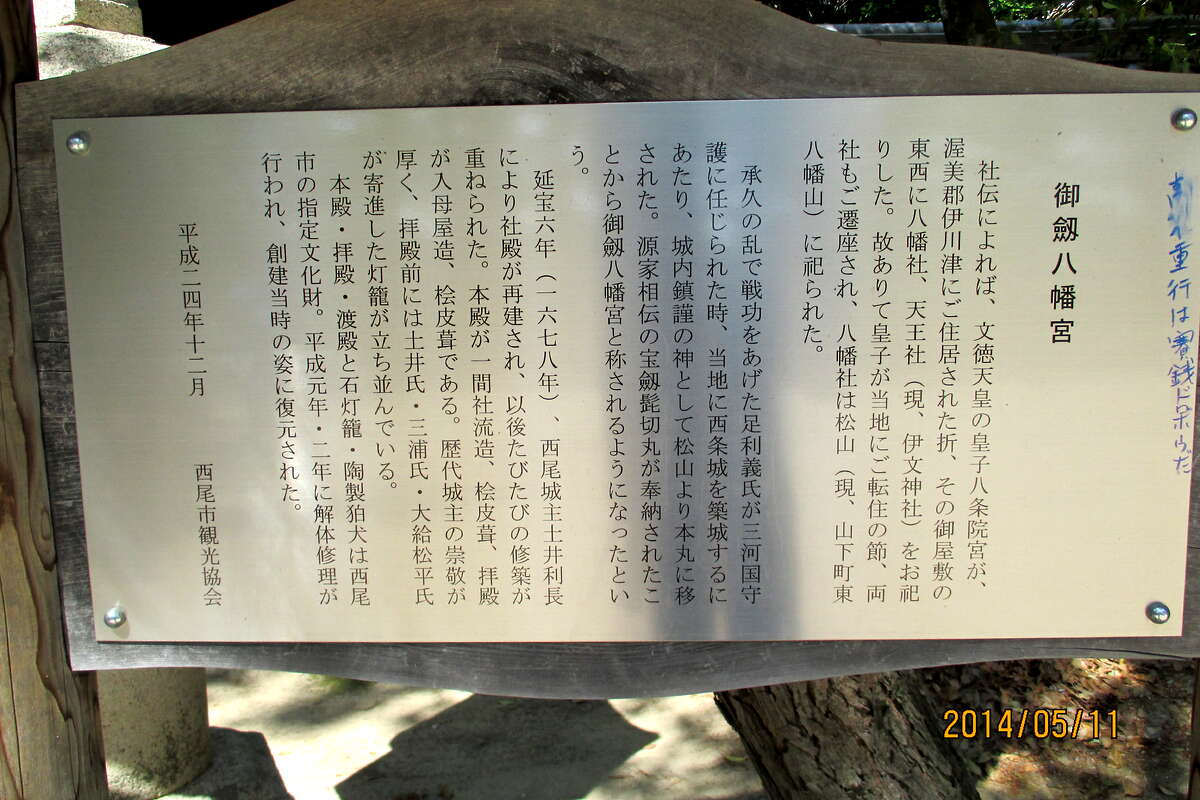 重行は賽銭ドロボウだ
御劔八幡宮
社伝によれば、文徳天皇の皇子八条院宮が、
渥美郡伊川津にご住居された折、その御屋敷の
東西に八幡社、天王社（現、伊文神社）をお祀
りした。故ありて皇子が当地にご転住の節、両
社もご遷座され、八幡社は松山（現、山下町東
八幡山）に祀られた。
承久の乱で戦功をあげた足利義氏が三河国守
護に任じられた時、当地に西条城を築城するに
あたり、城内鎮護の神として松山より本丸に移
された。源家相伝の宝劔髭切丸が奉納されたこ
とから御劔八幡宮と称されるようになったとい
う。
延宝六年（一六七八年）、西尾城主土井利長
により社殿が再建され、以後たびたびの修築が
重ねられた。本殿が一間社流造、桧皮葺、拝殿
が入母屋造、桧皮葺である。歴代城主の崇敬が
厚く、拝殿前には土井氏・三浦氏・大給松平氏
が寄進した灯籠が立ち並んでいる。
本殿・拝殿・渡殿と石灯籠・陶製狛犬は西尾
市の指定文化財。平成元年・二年に解体修理が
行われ、創建当時の姿に復元された。
平成二四年十二月
西尾市観光協会
2014/05/11